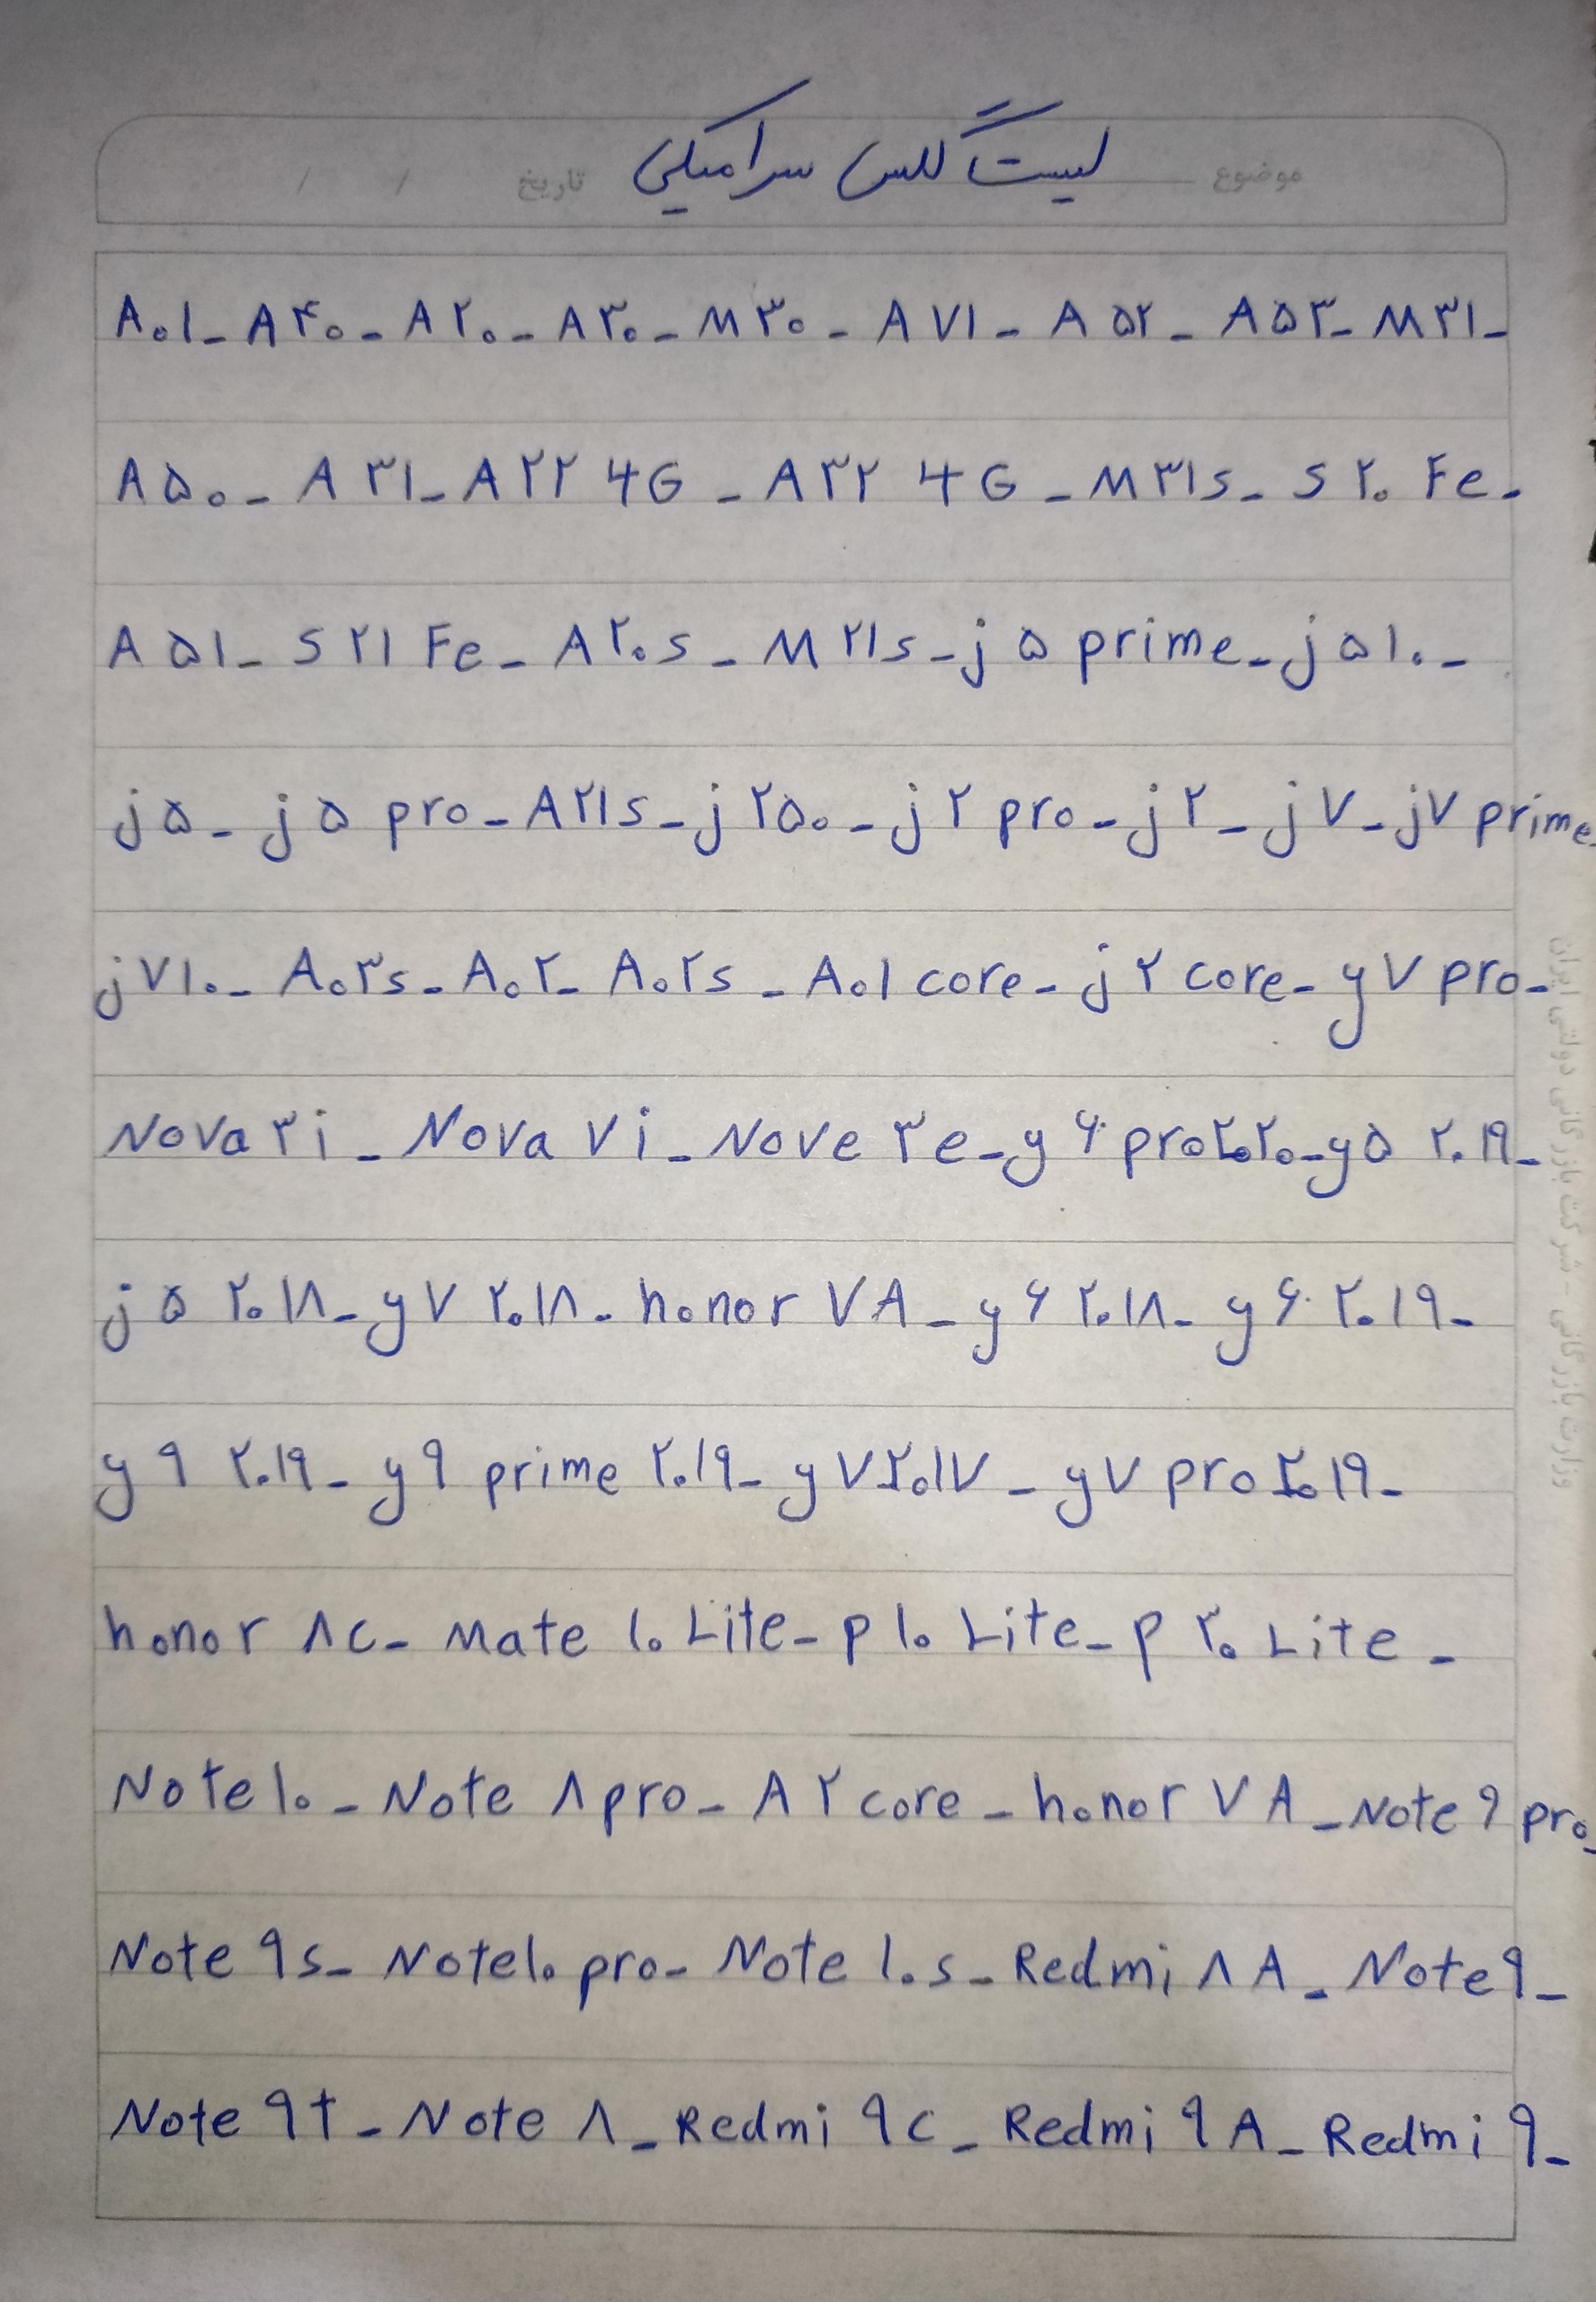 موضوع لیست گلس سرامیکی تاریخ / /
A۰۱ _ A۴۰ _ A۲۰ _ A۳۰ _ M۳۰ _ A۷۱ _ A۵۲ _ A۵۳ _ M۳۱ _
A۵۰ _ A۳۱ _ A۲۲ 4G _ A۳۲ 4G _ M۳۱s _ S۲۰ Fe _
A۵۱ _ S۲۱ Fe _ A۲۰s _ M۲۱s _ j۵ prime _ j۵۱۰ _
j۵ _ j۵ pro _ A۲۱s _ j۲۵۰ _ j۲ pro _ j۲ _ j۷ _ j۷ prime _
j۷۱۰ _ A۰۳s _ A۰۲ _ A۰۲s _ A۰۱ core _ j۲ core _ y۷ pro _
Nova ۳i _ Nova ۷i _ Nove ۳e _ y۶ pro ۲۰۲۰ _ y۵ ۲۰۱۹ _
j۵ ۲۰۱۸ _ y۷ ۲۰۱۸ _ honor ۷A _ y۶ ۲۰۱۸ _ y۶ ۲۰۱۹ _
y۹ ۲۰۱۹ _ y۹ prime ۲۰۱۹ _ y۷ ۲۰۱۷ _ y۷ pro ۲۰۱۹ _
honor ۸c _ Mate ۱۰ Lite _ p۱۰ Lite _ p۲۰ Lite _
Note ۱۰ _ Note ۸ pro _ A۲ core _ honor ۷A _ Note ۹ pro _
Note ۹s _ Note ۱۰ pro _ Note ۱۰s _ Redmi ۸A _ Note ۹ _
Note ۹t _ Note ۸ _ Redmi ۹c _ Redmi ۹A _ Redmi ۹ _